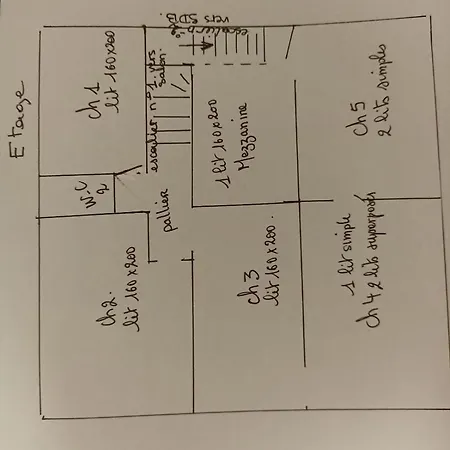 Etage
ch 1
lit 160x200
escalier n°1 vers
salon.
escalier n°
vers SDB.
1 lit 160x200
Mezzanine
ch 5
2 lits simples
W.C
2
pallier
ch2.
lit 160x200
ch 3
lit 160x200.
1 lit simple
ch 4 2 lits superposés